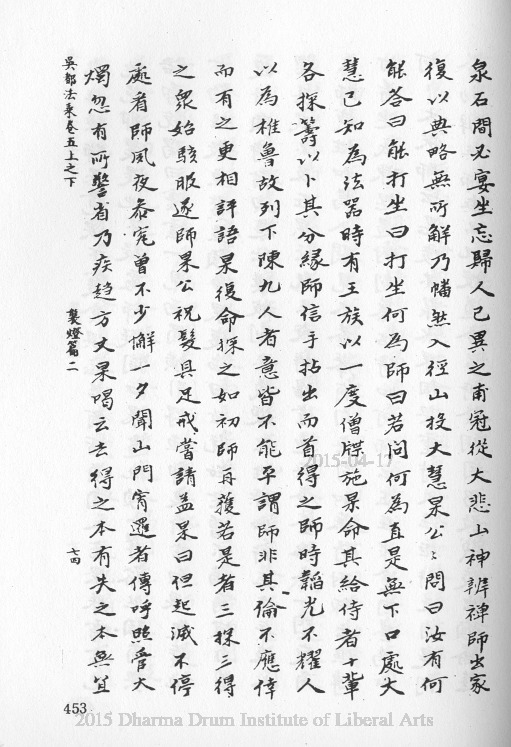 泉石間必宴坐忘歸人已異之甫冠從大悲山神辨禪師出家
復以典略無所解乃幡然入徑山投大慧杲公〻問曰汝有何
能答曰能打坐曰打坐何為師曰若問何為直是無下口處大
慧已知為法器時有王族以一度僧牒施杲命其給侍者十輩
各探籌以卜其分緣師信手拈出而首得之師時韜光不耀人
以為椎魯故列下陳九人者意皆不能平謂師非其倫不應倖
而有之更相評語杲復命探之如初師再獲若是者三探三得
之眾始駭服遂師杲公祝髮具足戒嘗請益杲曰但起滅不停
處看師夙夜叅究曾不少懈一夕聞山門宵邏者傳呼照管火
燭忽有所警省乃疾趨方丈杲喝云去得之本有失之本無宜
吳都法乘卷五上之下
製燈篇二
七四
453
2015-04-17
2015 Dharma Drum Institute of Liberal Arts